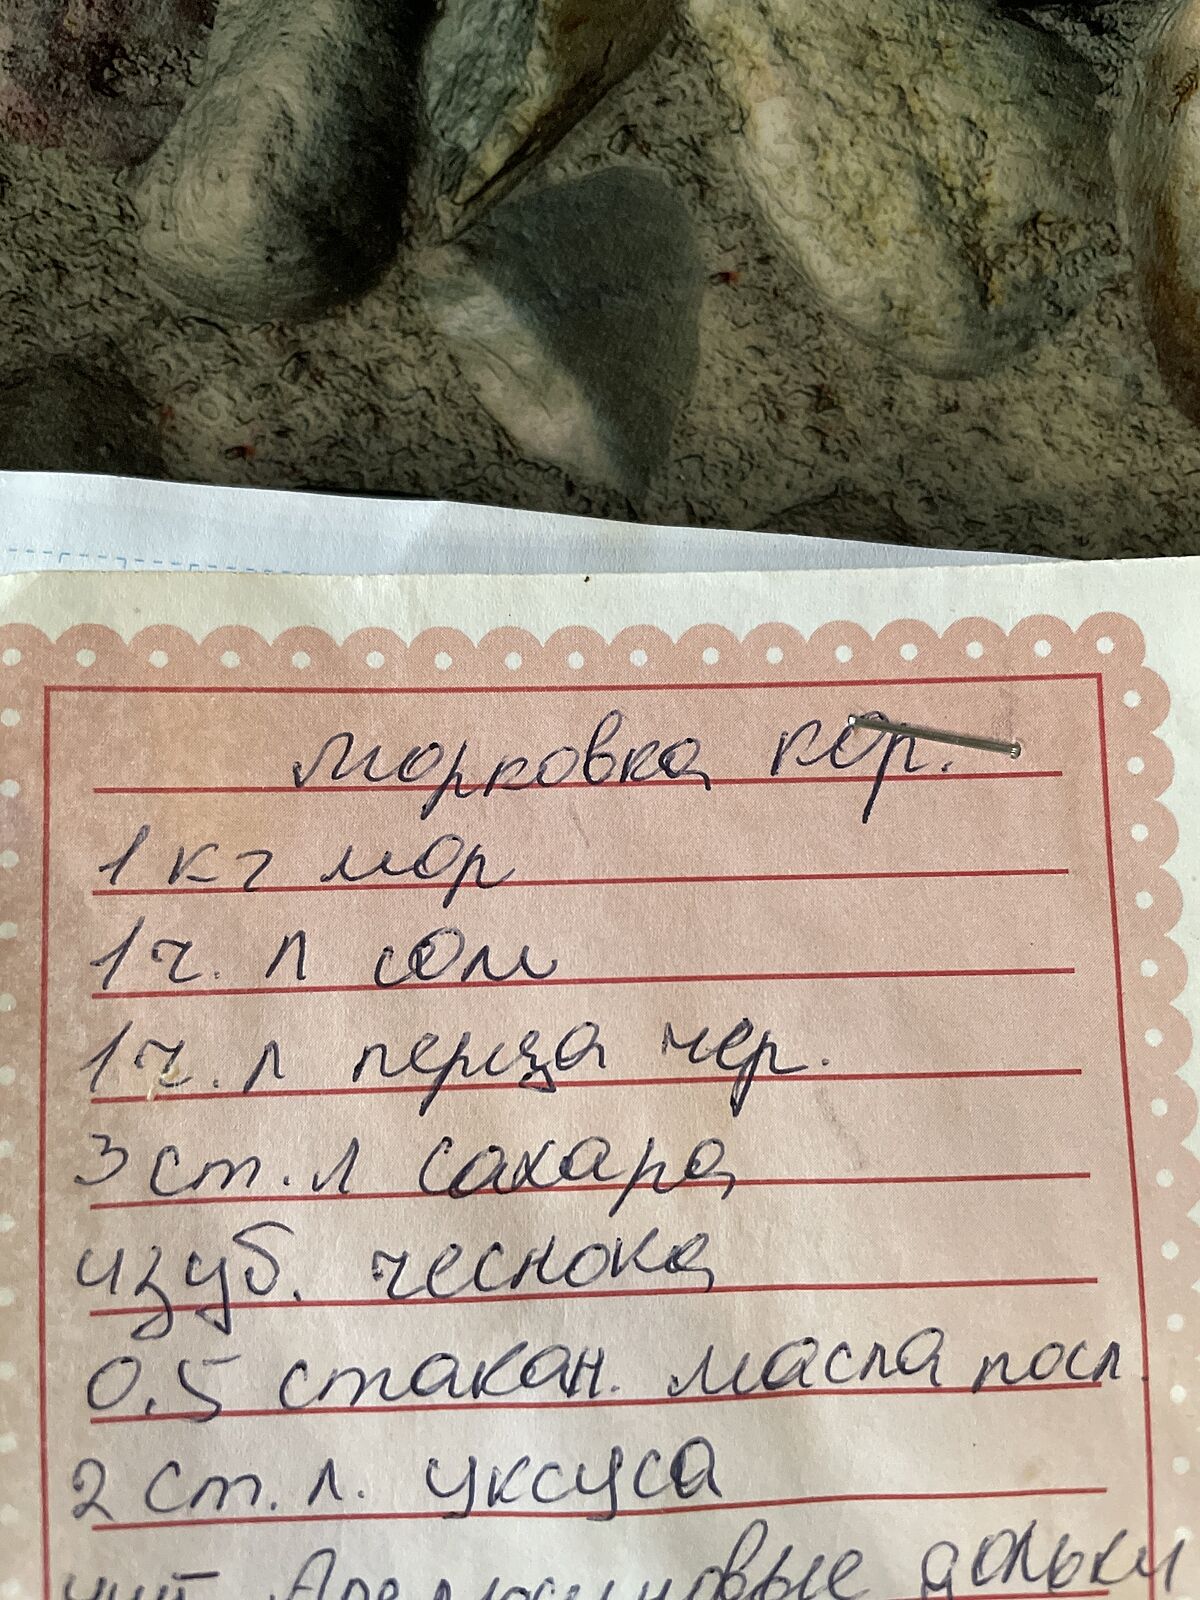 морковка кор.
1 кг мор
1 ч. л соли
1 ч. л перца чер.
3 ст. л сахара
4 зуб. чеснока
0,5 стакан. масла
2 ст. л. уксуса
Апельсиновые дольки